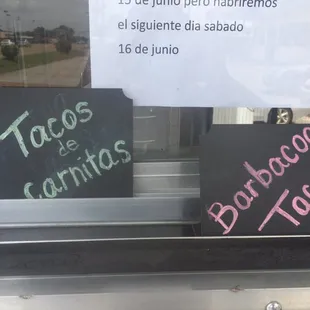 15 de junio pero habriremos
el siguiente dia sabado
16 de junio
Tacos
de
carnitas
Barbacoa